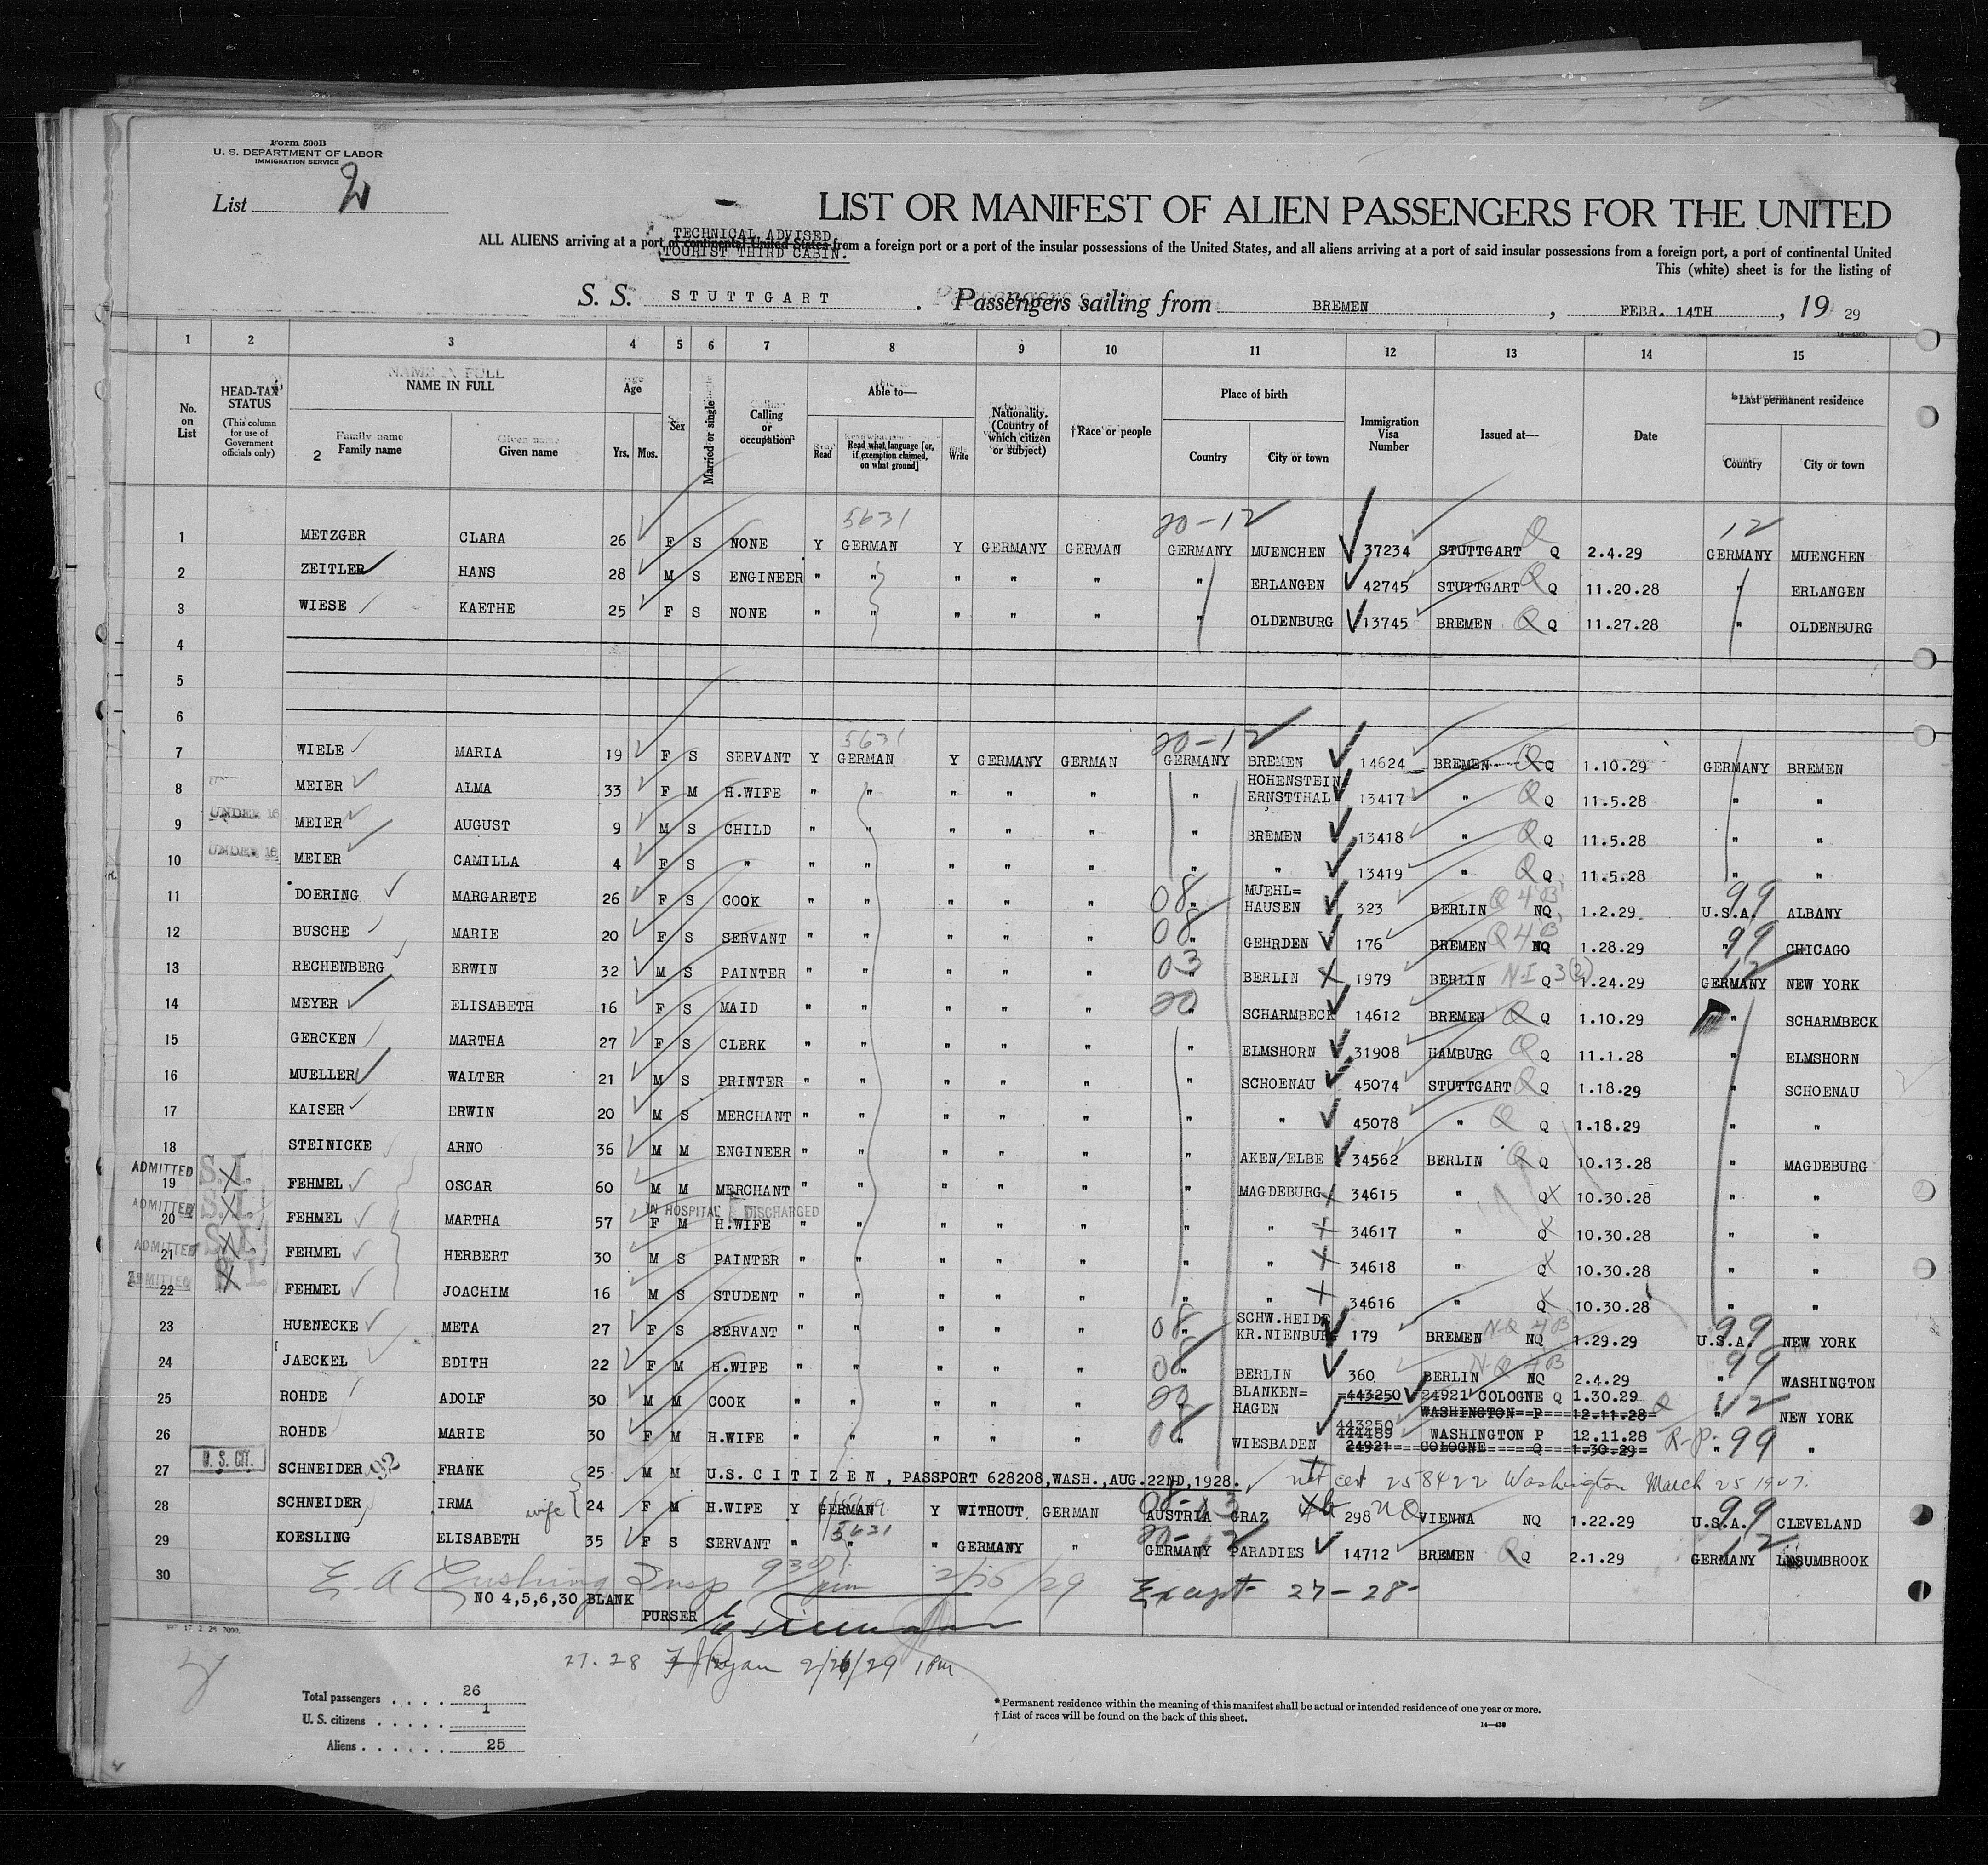 Form 500B
U. S. DEPARTMENT OF LABOR
IMMIGRATION SERVICE
List 2
LIST OR MANIFEST OF ALIEN PASSENGERS FOR THE UNITED
TECHNICAL ADVISED.
ALL ALIENS arriving at a port of continental United States from a foreign port or a port of the insular possessions of the United States, and all aliens arriving at a port of said insular possessions from a foreign port, a port of continental United
TOURIST THIRD CABIN.
This (white) sheet is for the listing of
S. S. STUTTGART . Passengers sailing from BREMEN , FEBR. 14TH , 19 29
1 2 3 4 5 6 7 8 9 10 11 12 13 14 15
No. on List
HEAD-TAX STATUS (This column for use of Government officials only)
NAME IN FULL
Family name
Given name
2
Age
Yrs. Mos.
Sex
Married or single
Calling or occupation
Able to—
Read
Read what language [or, if exemption claimed, on what ground]
Write
Nationality. (Country of which citizen or subject)
†Race or people
Place of birth
Country
City or town
Immigration Visa Number
Issued at—
Date
*Last permanent residence
Country
City or town
5631 20-12 12
1 METZGER CLARA 26 F S NONE Y GERMAN Y GERMANY GERMAN GERMANY MUENCHEN 37234 STUTTGART Q Q 2.4.29 GERMANY MUENCHEN
2 ZEITLER HANS 28 M S ENGINEER " " " " " " ERLANGEN 42745 STUTTGART Q Q 11.20.28 " ERLANGEN
3 WIESE KAETHE 25 F S NONE " " " " " " OLDENBURG 13745 BREMEN Q Q 11.27.28 " OLDENBURG
4
5
6
5631 20-12
7 WIELE MARIA 19 F S SERVANT Y GERMAN Y GERMANY GERMAN GERMANY BREMEN 14624 BREMEN Q Q 1.10.29 GERMANY BREMEN
8 MEIER ALMA 33 F M H.WIFE " " " " " " HOHENSTEIN ERNSTTHAL 13417 " Q Q 11.5.28 " "
UNDER 16
9 MEIER AUGUST 9 M S CHILD " " " " " " BREMEN 13418 " Q Q 11.5.28 " "
UNDER 16
10 MEIER CAMILLA 4 F S " " " " " " " " 13419 " Q Q 11.5.28 " "
11 DOERING MARGARETE 26 F S COOK " " " " " 08 " MUEHL= HAUSEN 323 BERLIN Q 4B NQ 1.2.29 99 U.S.A. ALBANY
12 BUSCHE MARIE 20 F S SERVANT " " " " " 08 " GEHRDEN 176 BREMEN Q 4B NQ 1.28.29 99 " CHICAGO
13 RECHENBERG ERWIN 32 M S PAINTER " " " " " 03 " BERLIN 1979 BERLIN N-I Q 3(2) 1.24.29 12 GERMANY NEW YORK
14 MEYER ELISABETH 16 F S MAID " " " " " 20 " SCHARMBECK 14612 BREMEN Q Q 1.10.29 " SCHARMBECK
15 GERCKEN MARTHA 27 F S CLERK " " " " " " ELMSHORN 31908 HAMBURG Q Q 11.1.28 " ELMSHORN
16 MUELLER WALTER 21 M S PRINTER " " " " " " SCHOENAU 45074 STUTTGART Q Q 1.18.29 " SCHOENAU
17 KAISER ERWIN 20 M S MERCHANT " " " " " " " 45078 " Q Q 1.18.29 " "
18 STEINICKE ARNO 36 M M ENGINEER " " " " " " AKEN/ELBE 34562 BERLIN Q Q 10.13.28 " MAGDEBURG
ADMITTED S.I.
19 FEHMEL OSCAR 60 M M MERCHANT " " " " " " MAGDEBURG 34615 " Q 10.30.28 " "
ADMITTED S.I. IN HOSPITAL DISCHARGED
20 FEHMEL MARTHA 57 F M H.WIFE " " " " " " " 34617 " Q 10.30.28 " "
ADMITTED S.I.
21 FEHMEL HERBERT 30 M S PAINTER " " " " " " " 34618 " Q 10.30.28 " "
ADMITTED S.I.
22 FEHMEL JOACHIM 16 M S STUDENT " " " " " " " 34616 " Q 10.30.28 " "
23 HUENECKE META 27 F S SERVANT " " " " " 08 " SCHW.HEIDE KR.NIENBURG 179 BREMEN N-Q 4B NQ 1.29.29 99 U.S.A. NEW YORK
24 JAECKEL EDITH 22 F M H.WIFE " " " " " 08 " BERLIN 360 BERLIN N-Q 4B NQ 2.4.29 99 " WASHINGTON
25 ROHDE ADOLF 30 M M COOK " " " " " 20 " BLANKEN= HAGEN 443250 24921 COLOGNE Q 1.30.29 WASHINGTON P 12.11.28 Q 12 " NEW YORK
26 ROHDE MARIE 30 F M H.WIFE " " " " " 08 " WIESBADEN 443250 444489 WASHINGTON P 12.11.28 24921 COLOGNE Q 1.30.29 R-P. 99 " "
U. S. CIT.
27 SCHNEIDER 92 FRANK 25 M M U.S. CITIZEN, PASSPORT 628208, WASH., AUG.22ND,1928. nat cert 258422 Washington March 25 1927.
28 SCHNEIDER wife IRMA 24 F M H.WIFE Y GERMAN Y WITHOUT GERMAN AUSTRIA GRAZ 298 NQ VIENNA NQ 1.22.29 99 U.S.A. CLEVELAND
29 KOESLING ELISABETH 35 F S SERVANT " 5631 " " GERMANY " 20-12 GERMANY PARADIES 14712 BREMEN Q Q 2.1.29 12 GERMANY
30 E. A Cushing Insp 930 pm 2/25/29 Except 27-28-
NO 4,5,6,30 BLANK
PURSER
27. 28 Ryan 2/26/29 1 PM
Total passengers . . . . 26
U. S. citizens . . . . . 1
Aliens . . . . . . 25
* Permanent residence within the meaning of this manifest shall be actual or intended residence of one year or more.
† List of races will be found on the back of this sheet.
14—430